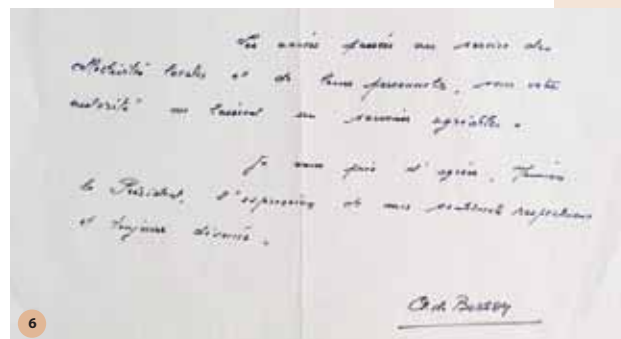 Les années passées au service des
collectivités locales et de leurs personnels, sous votre
autorité me laissent un souvenir agréable.
Je vous prie d'agréer, Monsieur
le Président, l'expression de mes sentiments respectueux
et toujours dévoués.
Ch de
6